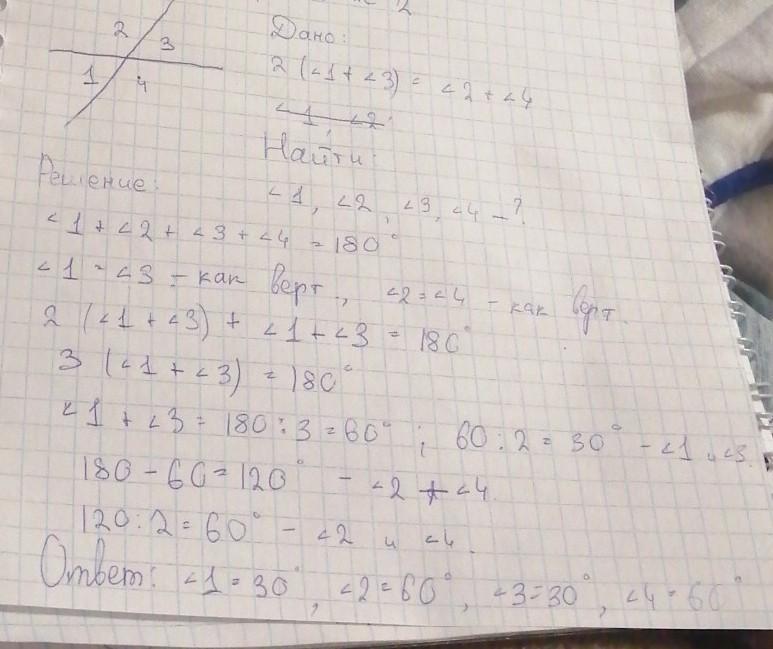 2
2
3
1
4
Дано:
2 (∠1 + ∠3) = ∠2 + ∠4
∠1, ∠2
Найти:
∠1, ∠2, ∠3, ∠4 – ?
Решение:
∠1 + ∠2 + ∠3 + ∠4 = 180°
∠1 = ∠3 – как верт., ∠2 = ∠4 – как верт.
2 (∠1 + ∠3) + ∠1 + ∠3 = 180°
3 (∠1 + ∠3) = 180°
∠1 + ∠3 = 180 : 3 = 60° ; 60 : 2 = 30° – ∠1 и ∠3.
180 – 60 = 120° – ∠2 + ∠4.
120 : 2 = 60° – ∠2 и ∠4.
Ответ: ∠1 = 30°, ∠2 = 60°, ∠3 = 30°, ∠4 = 60°